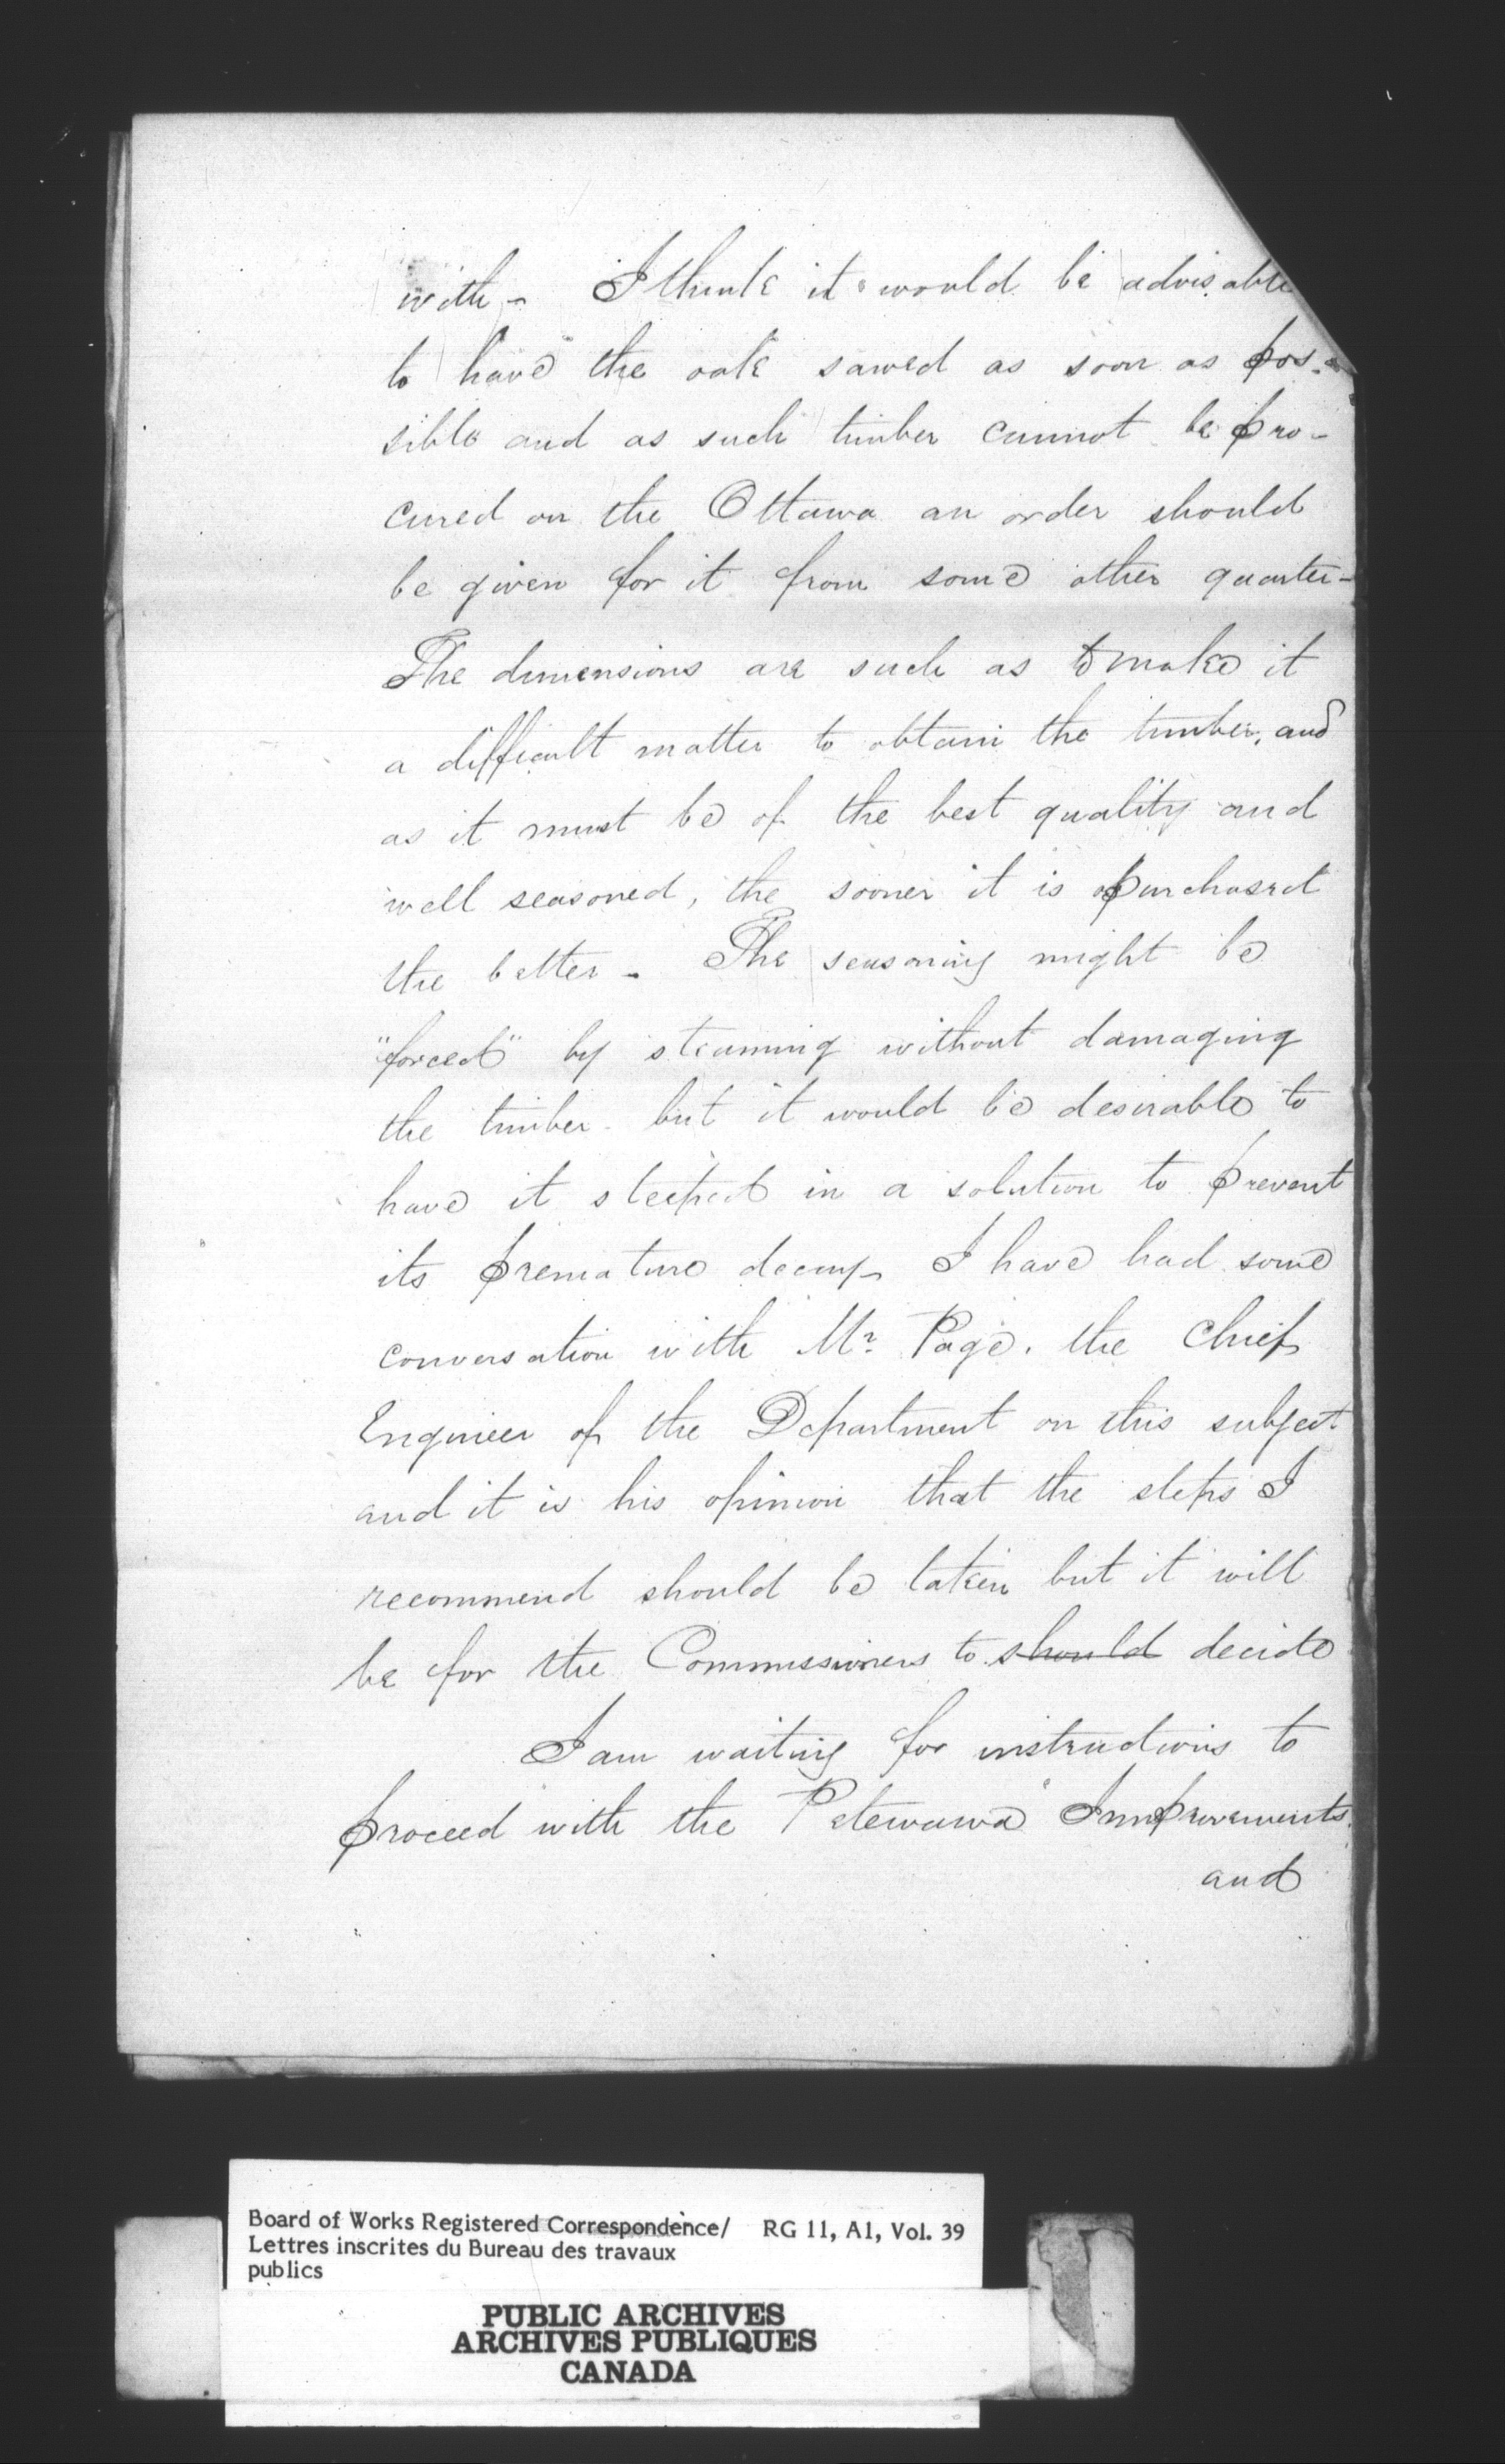 with - I think it would be advisable
to have the oak sawed as soon as pos-
sible and as such timber cannot be pro-
cured on the Ottawa an order should
be given for it from some other quarter -
The dimensions are such as to make it
a difficult matter to obtain the timber, and
as it must be of the best quality and
well seasoned, the sooner it is purchased
the better - The seasoning might be
"forced" by steaming without damaging
the timber - but it would be desirable to
have it steeped in a solution to prevent
its premature decay - I have had some
conversation with Mr. Page, the Chief
Engineer of the Department on this subject
and it is his opinion that the steps I
recommend should be taken but it will
be for the Commissioners to should decide
I am waiting for instructions to
proceed with the Petewawa Improvements.
and
Board of Works Registered Correspondence/ RG 11, A1, Vol. 39
Lettres inscrites du Bureau des travaux
publics
PUBLIC ARCHIVES
ARCHIVES PUBLIQUES
CANADA